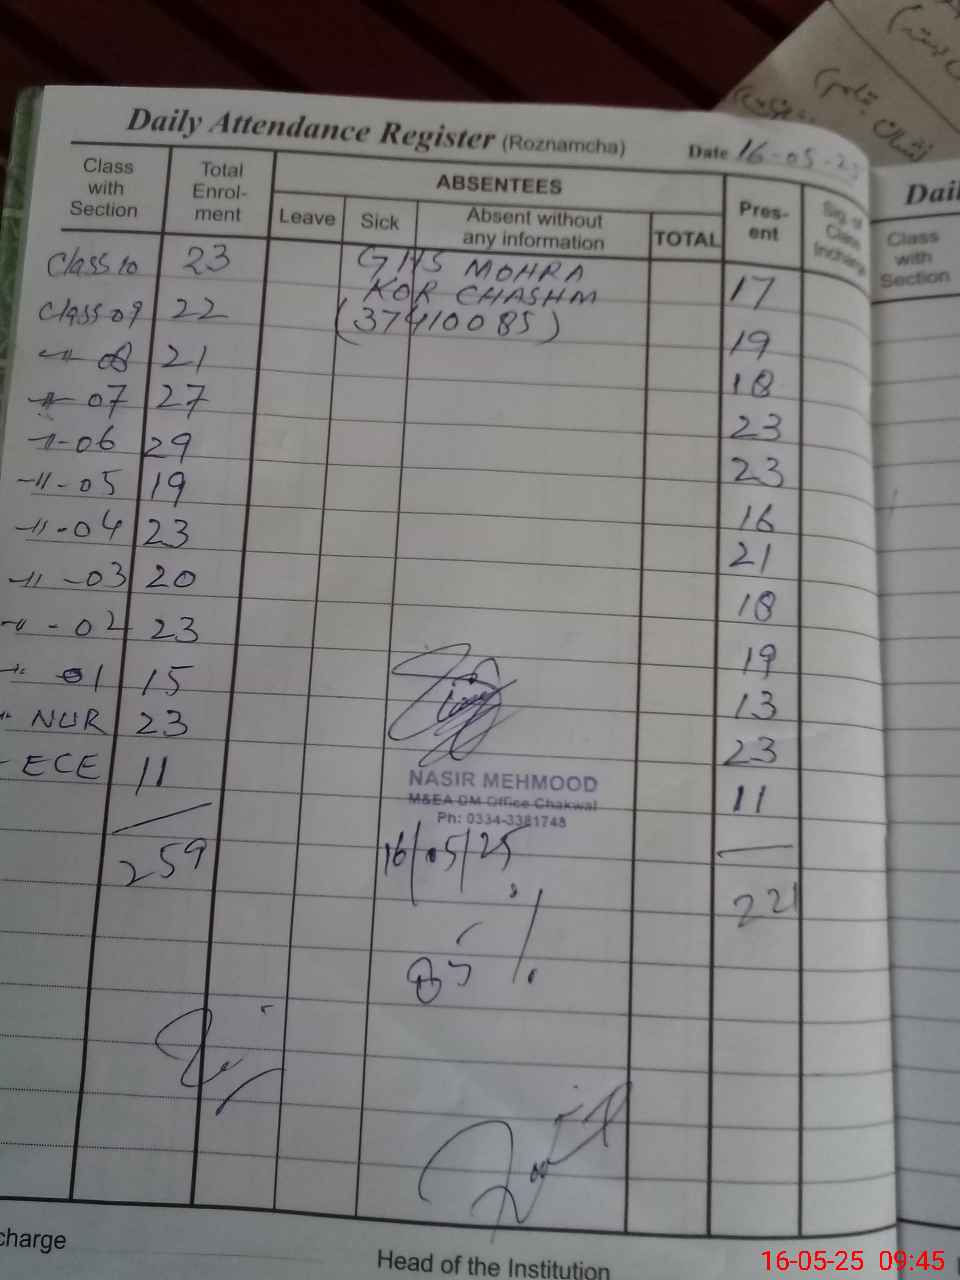 Daily Attendance Register (Roznamcha) Date 16-05-25
Class with Section
Total Enrol-ment
ABSENTEES
Leave
Sick
Absent without any information
TOTAL
Pres-ent
Sig. of Class Incharge
Class 10 23 GHS MOHRA 17
KOR CHASHM
Class 09 22 (37410085) 19
-11- 08 21 18
-11- 07 27 23
-11- 06 29 23
-11- 05 19 16
-11- 04 23 21
-11- 03 20 18
-11- 02 23 19
-11- 01 15 13
-11- NUR 23 23
- ECE 11 11
NASIR MEHMOOD
M&EA DM Office Chakwal
Ph: 0334-3381748
259 16/05/25 221
85%
charge
Head of the Institution
Dail
Class with Section
16-05-25 09:45